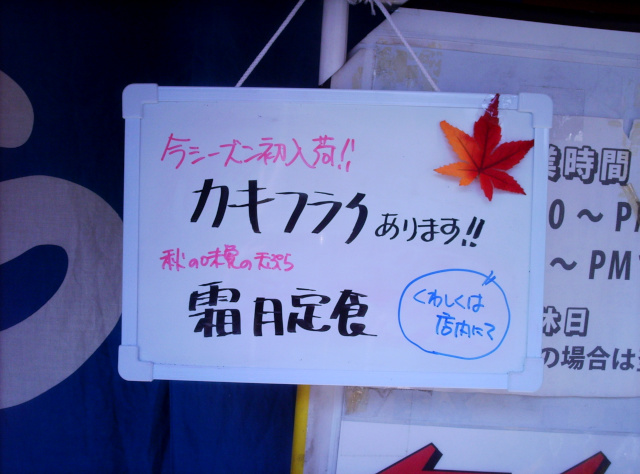 今シーズン初入荷!!
カキフライあります!!
秋の味覚の天ぷら
霜月定食
くわしくは
店内にて
業時間
0～P
～PM
休日
の場合は